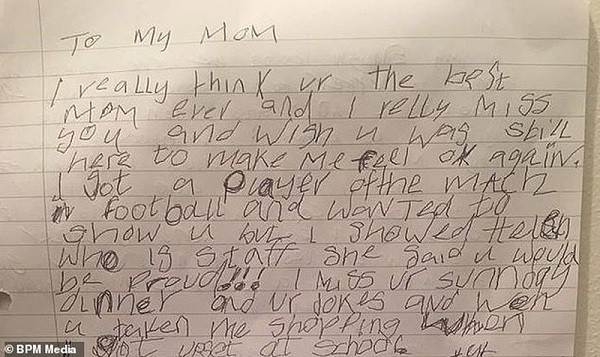 To My MOM
I really think ur the best
MOM ever and I relly Miss
you and wish u was still
here to make Me feel ok again.
I got a player ofthe mach
in football and wanted to
show u but I showed Helen
who is staff she said u would
be proud!!! I Miss ur sunndy
dinner and ur jokes and wen
u taken me shopping when
I got upset at school
© BPM Media